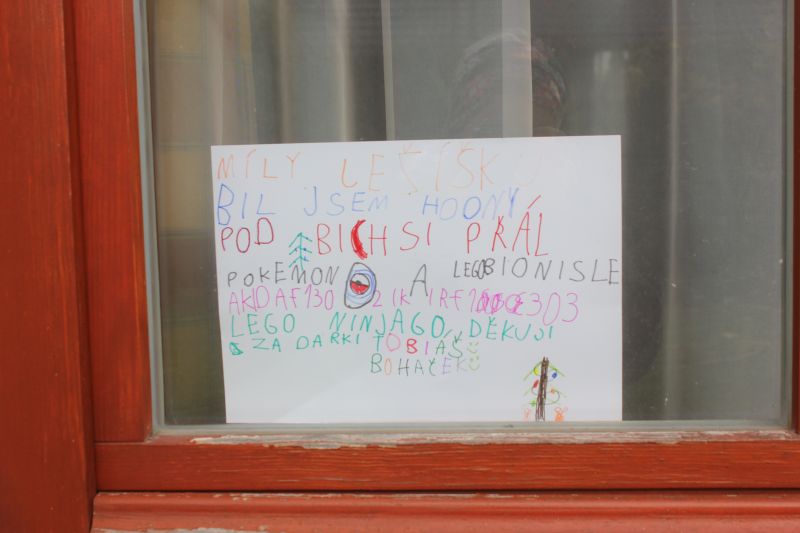 MÍLY JEŠÍŠKU
BIL JSEM HODNÝ
POD BICH SI PŘÁL
POKÉMON A LEGO BIONISLE
LEGO NINJAGO DĚKUJI
ZA DARKI TOBIAŠ
BOHAČEK